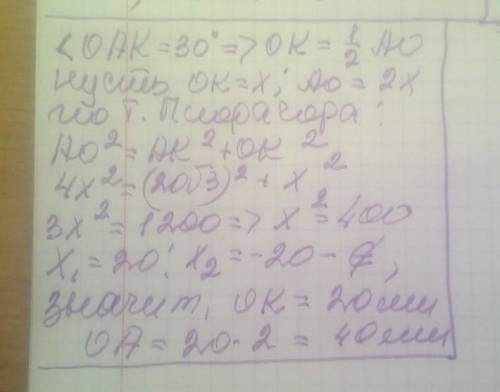 <OAK=30°=>OK=½AO
пусть OK=x; AO=2x
по т. Пифагора:
AO²=AK²+OK²
4x²=(20√3)²+x²
3x²=1200=>x²=400
x₁=20; x₂=-20-∉,
значит, OK=20мм
OA=20·2=40мм